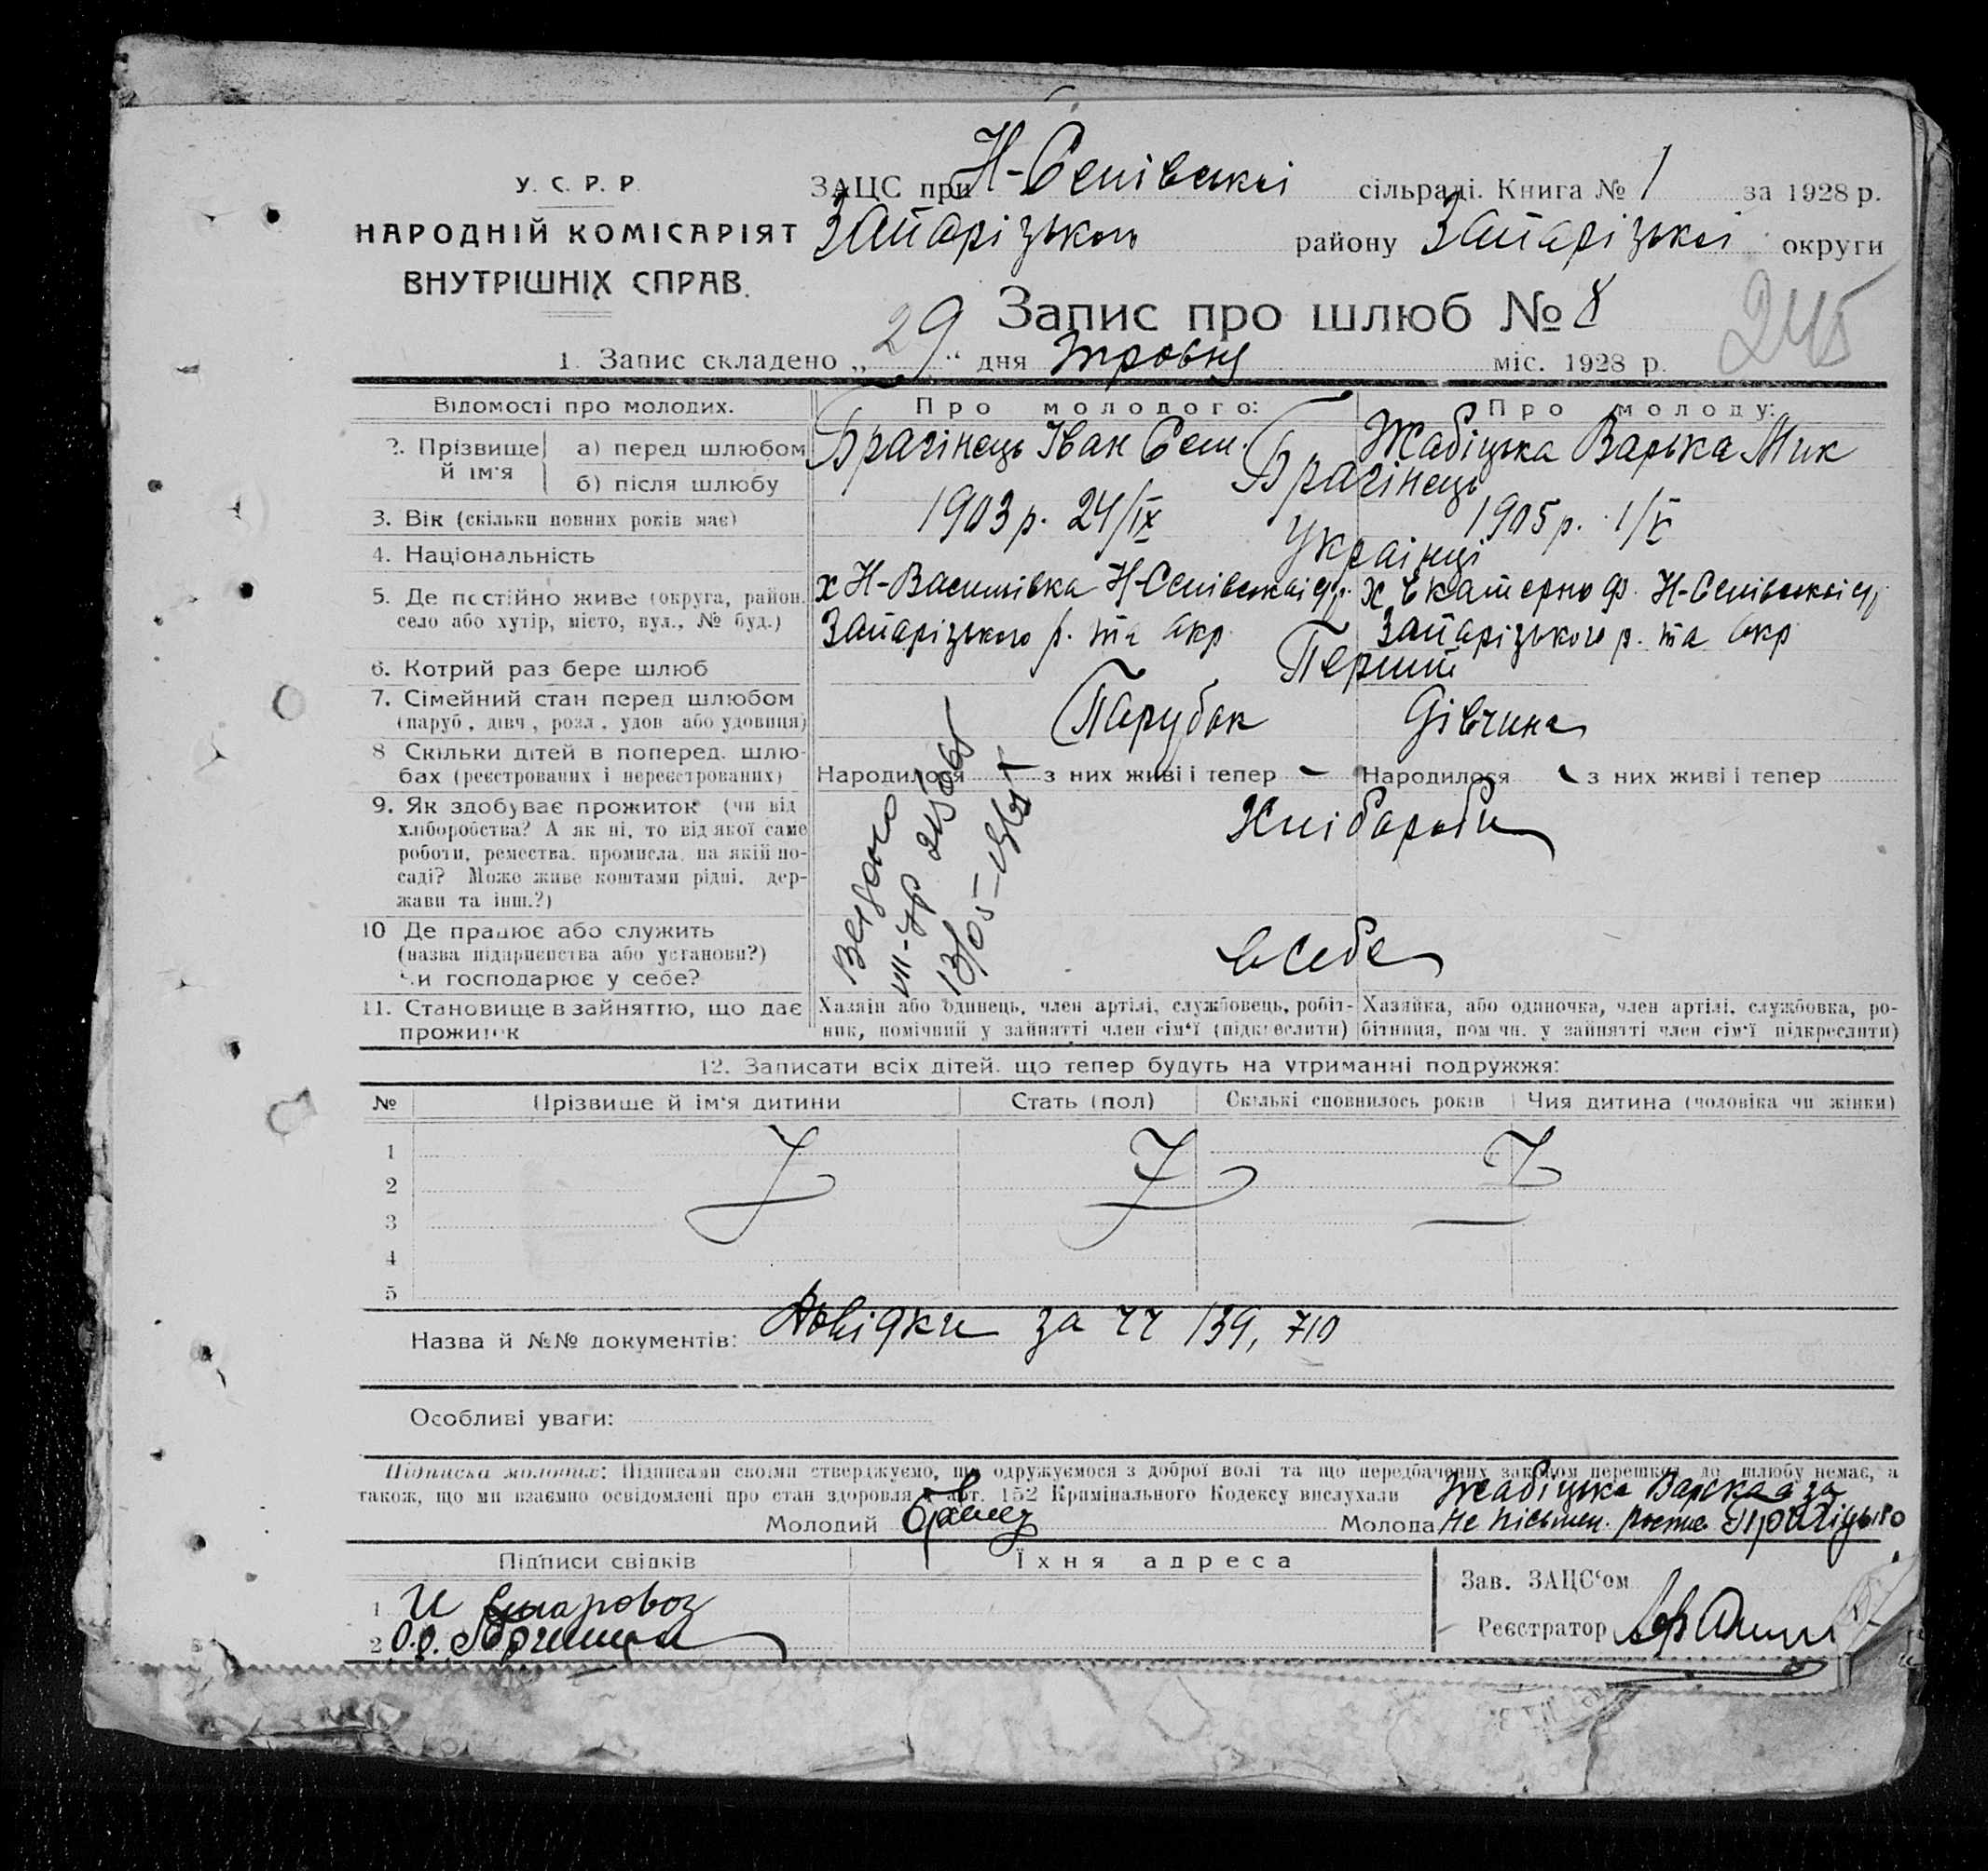 У. С. Р. Р.
НАРОДНІЙ КОМІСАРІЯТ
ВНУТРІШНІХ СПРАВ.
ЗАЦС при Н- сільраді. Книга № 1 за 1928 р.
Запарізького району Запарізької округи
Запис про шлюб № 8
245
1. Запис складено „29“ дня травня міс. 1928 р.
Відомості про молодих. Про молодого: Про молоду:
2. Прізвище й ім'я а) перед шлюбом Брагінець Іван Сем. Жабіцька Варька Мик
б) після шлюбу Брагінець
3. Вік (скільки повних років має) 1903 р. 24/IX 1905 р. 1/V
4. Національність Українці
5. Де постійно живе (округа, район, село або хутір, місто, вул., № буд.)
х Н-Василівка
Запарізького р. та окр
х Запарізького р. та окр
6. Котрий раз бере шлюб Перший
7. Сімейний стан перед шлюбом Парубок Дівчина
(паруб., дівч., розл., удов. або удовиця)
8 Скільки дітей в поперед. шлюбах (реєстрованих і нереєстрованих)
Народилося з них живі і тепер – Народилося - з них живі і тепер
9. Як здобуває прожиток (чи від
хліборобства? А як ні, то від якої саме
роботи, ремества, промисла, на якій по-
саді? Може живе коштами рідні, дер-
жави та інш.?)
Хлібароби
10 Де працює або служить
(назва підприємства або установи?)
Чи господарює у себе?
в себе
11. Становище в зайняттю, що дає
прожиток
Хазяїн або одинець, член артілі, службовець, робіт-
ник, помічний у зайнятті член сім'ї (підкреслити)
Хазяйка, або одиночка, член артілі, службовка, ро-
бітниця, пом чн. у зайнятті член сім'ї підкреслити)
12. Записати всіх дітей, що тепер будуть на утриманні подружжя:
№ Прізвише й ім'я дитини Стать (пол) Скількі сповнилось років Чия дитина (чоловіка чи жінки)
1
2
3
4
5
Назва й №№ документів: Довідки за 139, 710
Особливі уваги:
Підписка молодих: Підписами своїми стверджуємо, що одружуємося з доброї волі та що передбачених законом перешкод до шлюбу немає, а
також, що ми взаємно освідомлені про стан здоровля й арт. 152 Кримінального Кодексу вислухали
Жабіцька Варька а за
Молодий Молода
Підписи свідків Їхня адреса
1
2
Зав. ЗАЦС'ом
Реєстратор